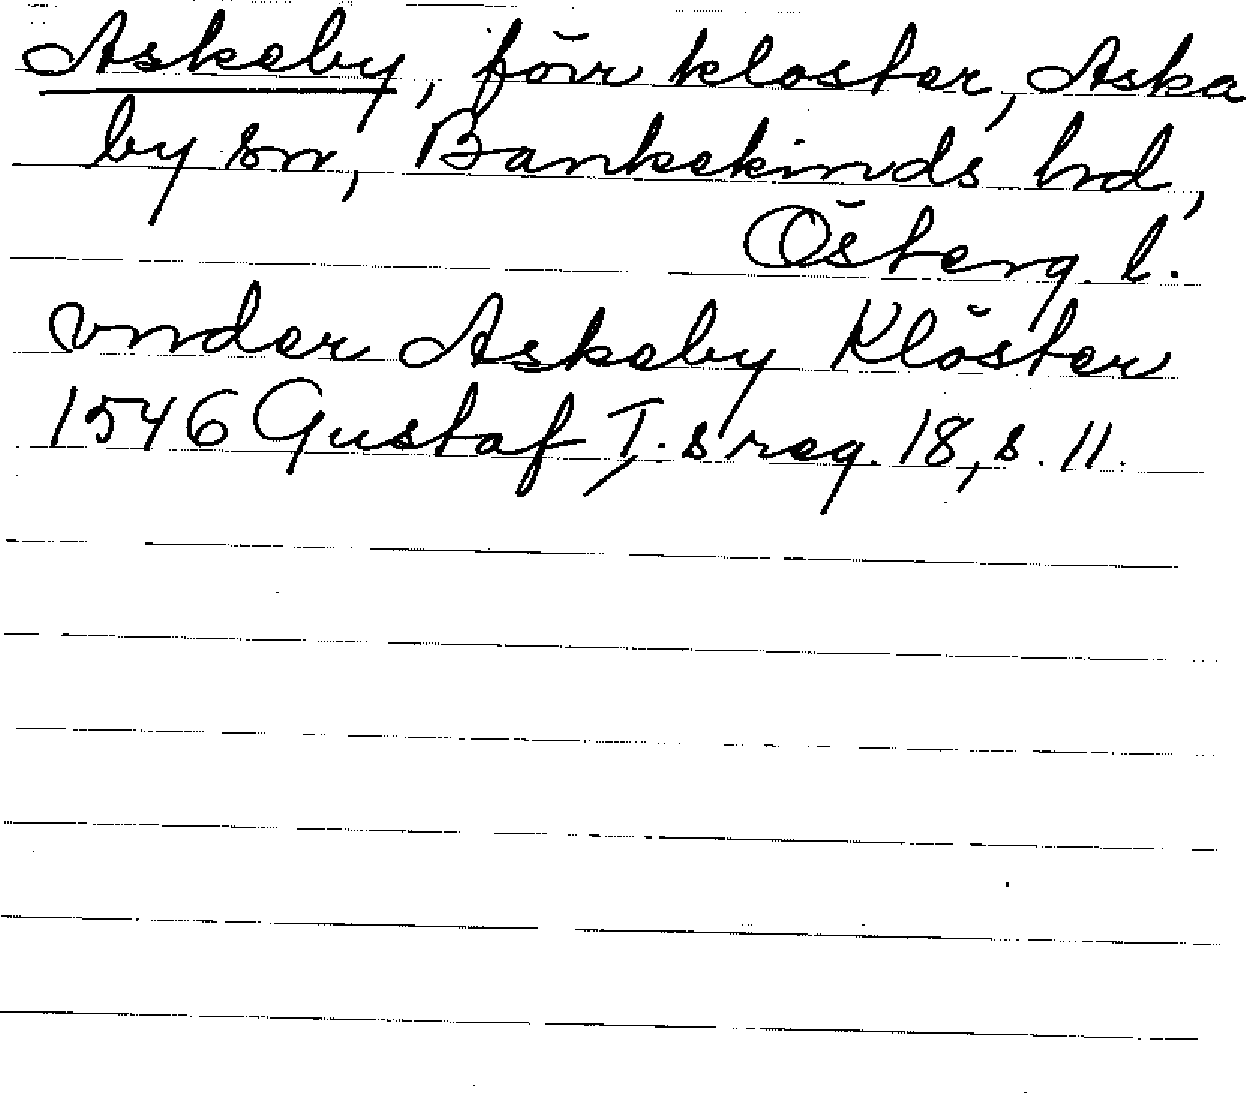 Askeby, förr kloster, Aska
by sn, Bankekinds hrd,
Österg. l.
vnder Askeby Klöster
1546 Gustaf I.s reg. 18, s. 11.